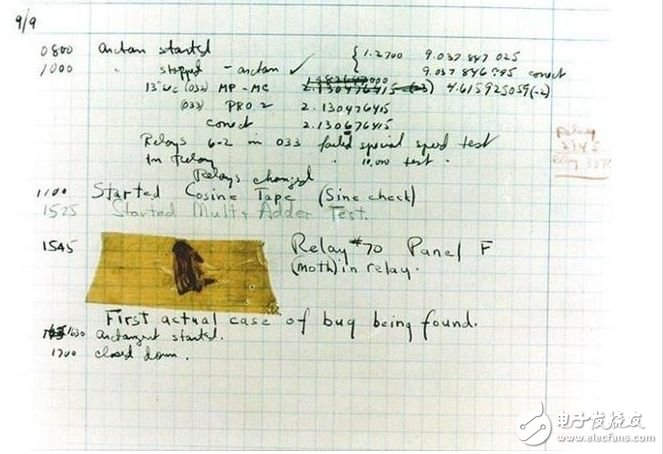 9/9
0800 arctan started { 1.2700 9.037 847 025
1000 " stopped - arctan ✓ 9.037 846 995 correct
13" uc (032) MP - MC 2.130476415 (-3) 4.615925059(-2)
(033) PRO 2 2.130476415
correct 2.130676415
Relays 6-2 in 033 failed special speed test
In Relay " 10,000 test .
Relay
2145
Relay 3370
Relays changed
1100 Started Cosine Tape (Sine check)
1525 Started Mult + Adder Test.
1545 Relay #70 Panel F
(moth) in relay.
First actual case of bug being found.
1630 arctangent started.
1700 closed down.
电子发烧友
www.elecfans.com